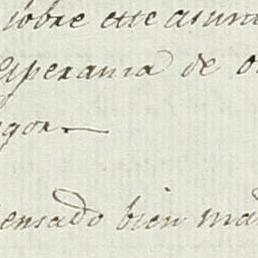 sobre este asunt
Esperanza de o
gor.
ensado bien mad